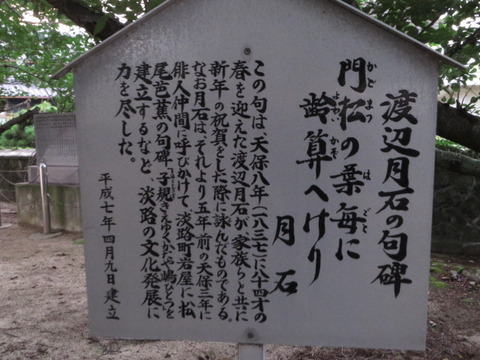 渡辺月石の句碑
門松の葉毎に
かどまつ は ごと
齢算へけり
よわい かぞ
月石
この句は、天保八年(一八三七)に八十四才の
春を迎えた渡辺月石が家族らと共に
新年の祝賀をした際に詠んだものである。
なお月石は、それより五年前の天保三年に
俳人仲間に呼びかけて、淡路町岩屋に松
尾芭蕉の句碑、子規きえゆくかたや嶋ひとつを
建立するなど、淡路の文化発展に
力を尽した。
平成七年四月九日建立